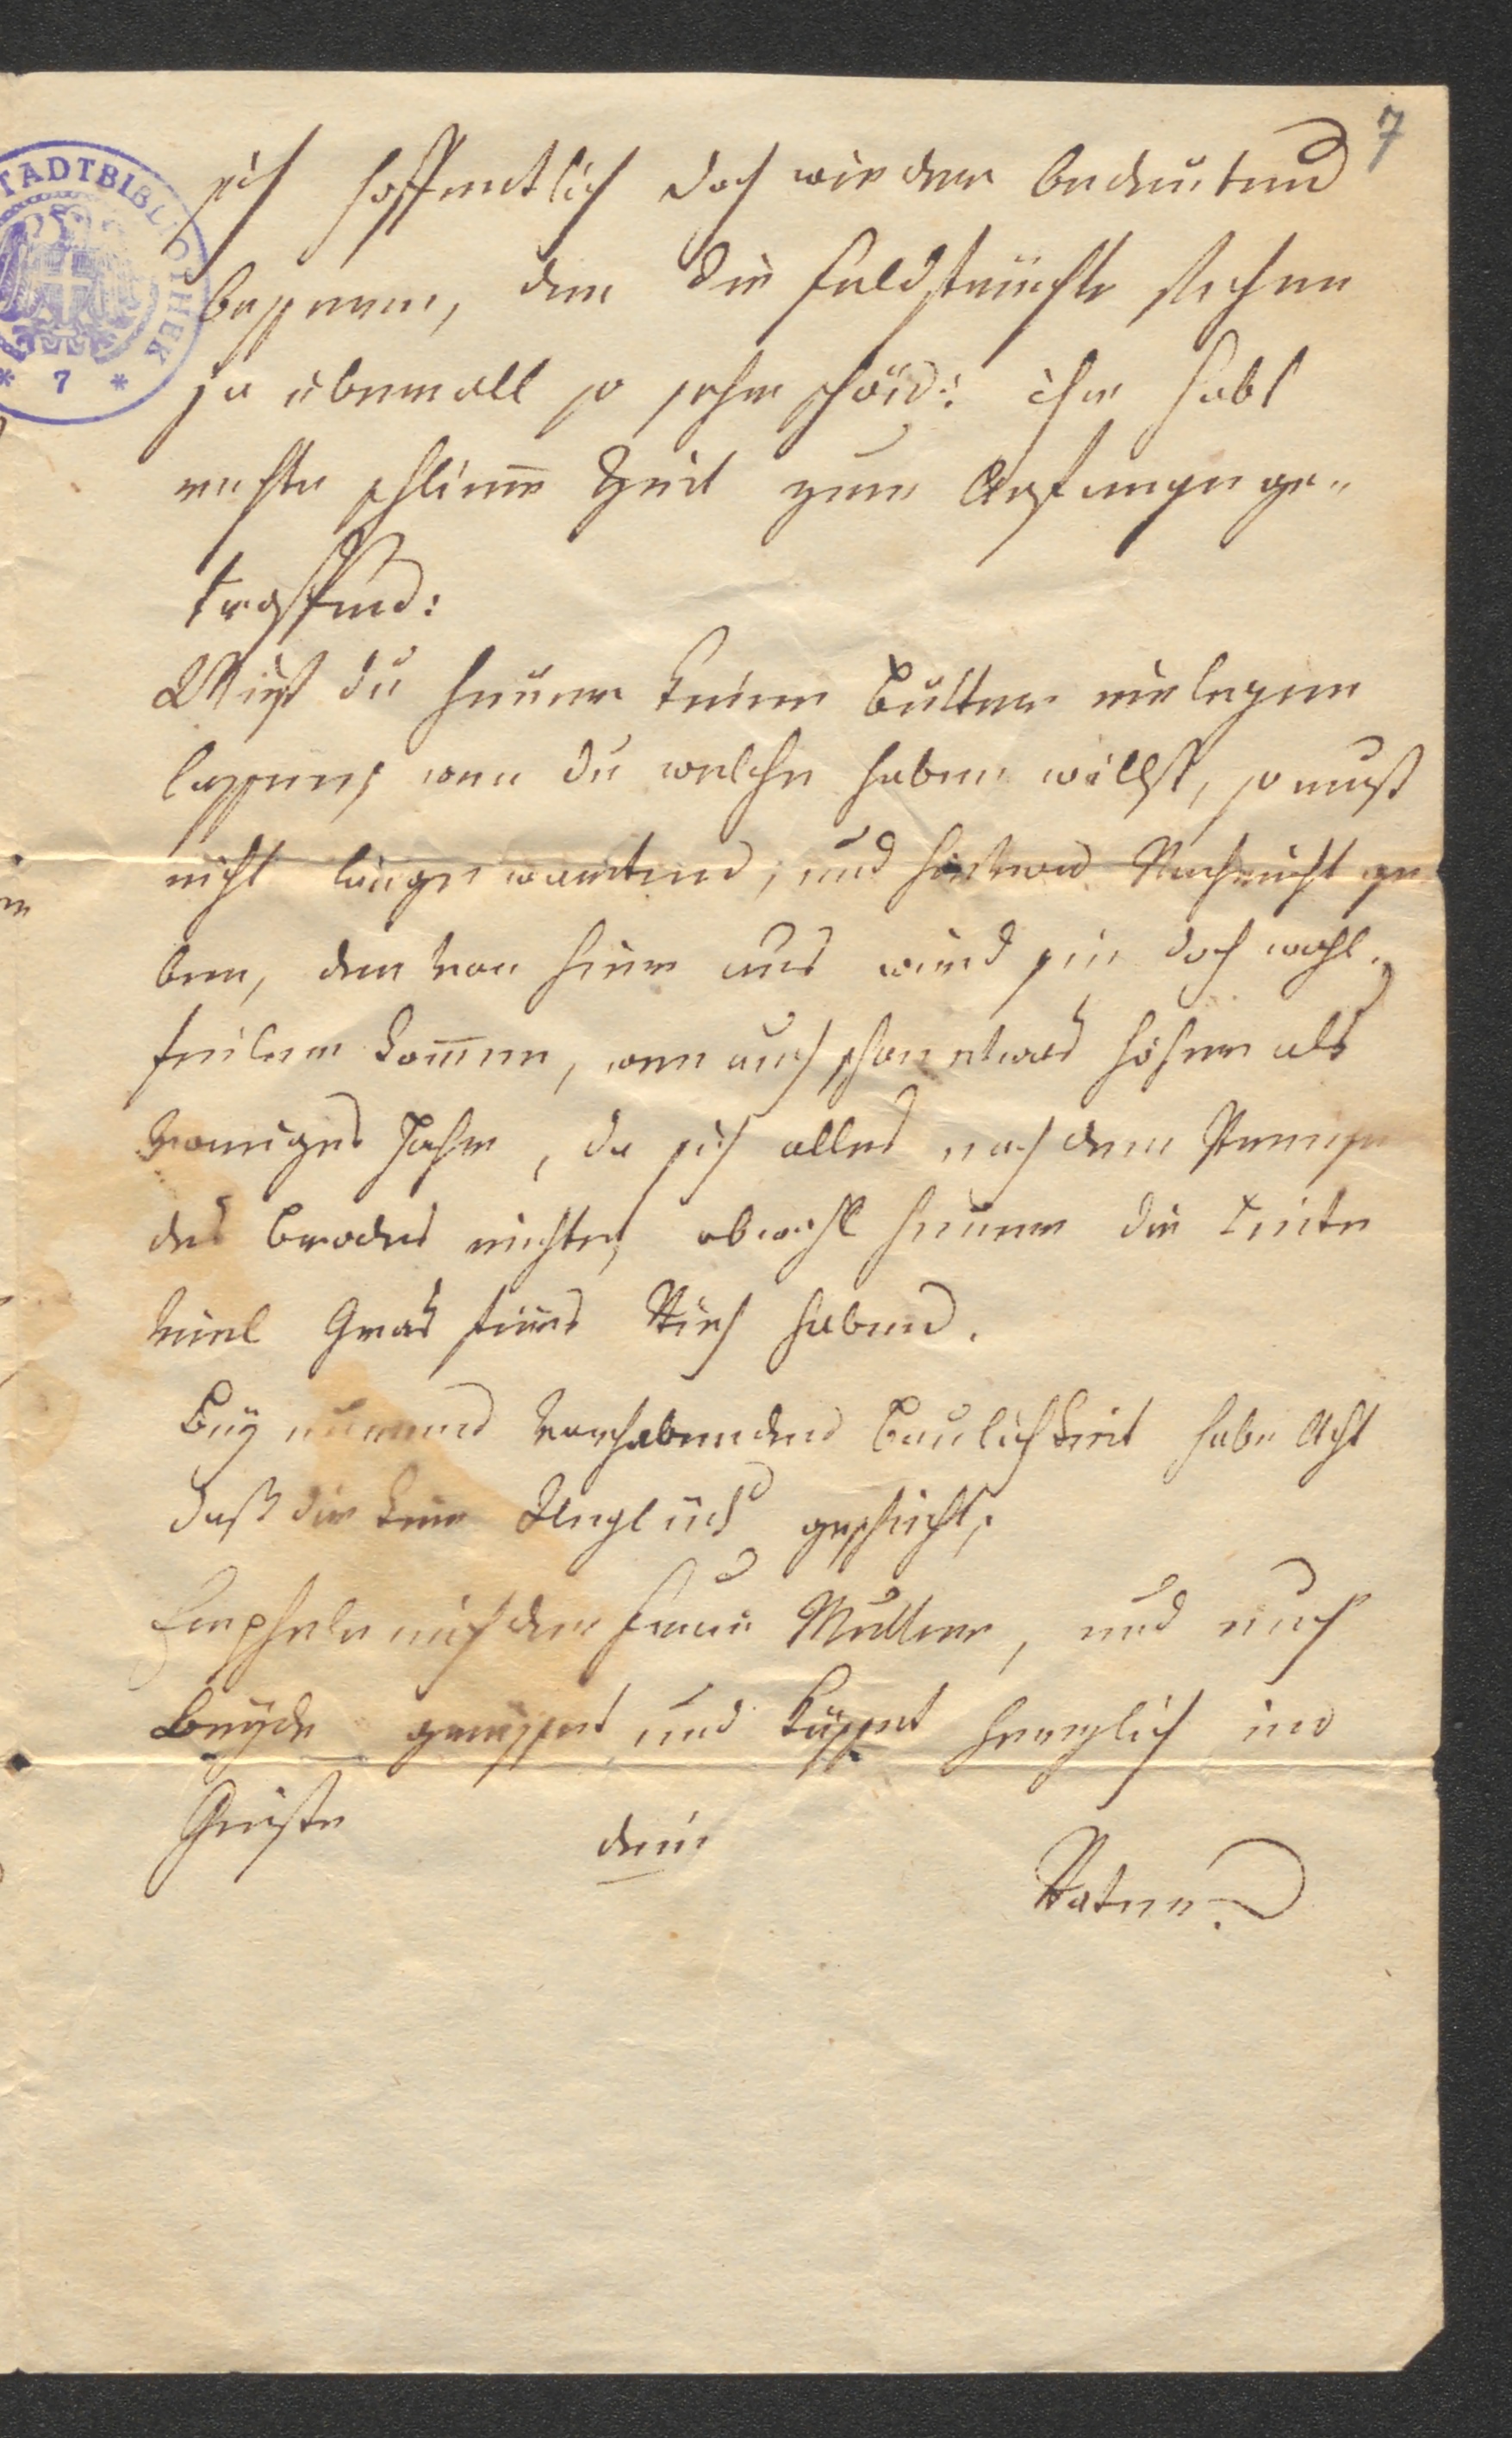 7
STADTBIBLIOTHEK
* 7 *
sich hoffentlich doch wieder bedeutend
bessern, den die Feldfrüchte stehen
ja überall so sehr schön: ihr habt
rechte schlime Zeit zum Anfange ge„
troffen:
Wirst du heuer keine Butter einlegen
lassen, wen du welche haben willst, so must
nicht lange warten, und hievon Nachricht ge
ben, den von hier aus wird sie doch wohl„
feiler komen, wen auch schon etwas höher als
voriges Jahr, da sich alles nach dem Preise
des Brodes richtet, obwohl heuer die Leute
viel Gras fürs Vieh haben.
Bey eurem vorhabenden Baulichkeit habe Acht
daß dir kein Unglück geschieht,
Empfehle mich der Frau Mutter, und euch
beyde grüsset und küsset herzlich im
Geiste dein
Vater